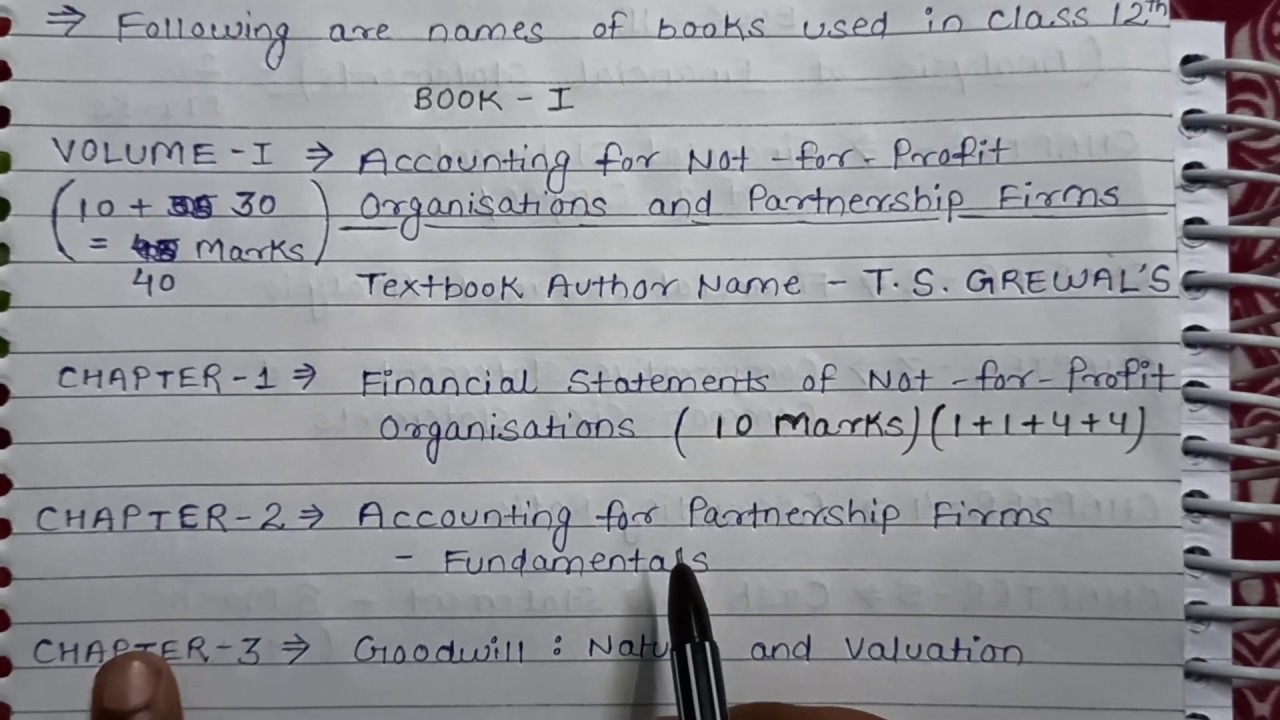 ⇒ Following are names of books used in class 12th
BOOK - I
VOLUME - I ⇒ Accounting for Not-for-Profit
(10 + 30 Organisations and Partnership Firms
= Marks)
40 Textbook Author Name - T. S. GREWAL'S
CHAPTER - 1 ⇒ Financial Statements of Not-for-Profit
Organisations (10 Marks) (1+1+4+4)
CHAPTER - 2 ⇒ Accounting for Partnership Firms
- Fundamentals
CHAPTER - 3 ⇒ Goodwill : and Valuation